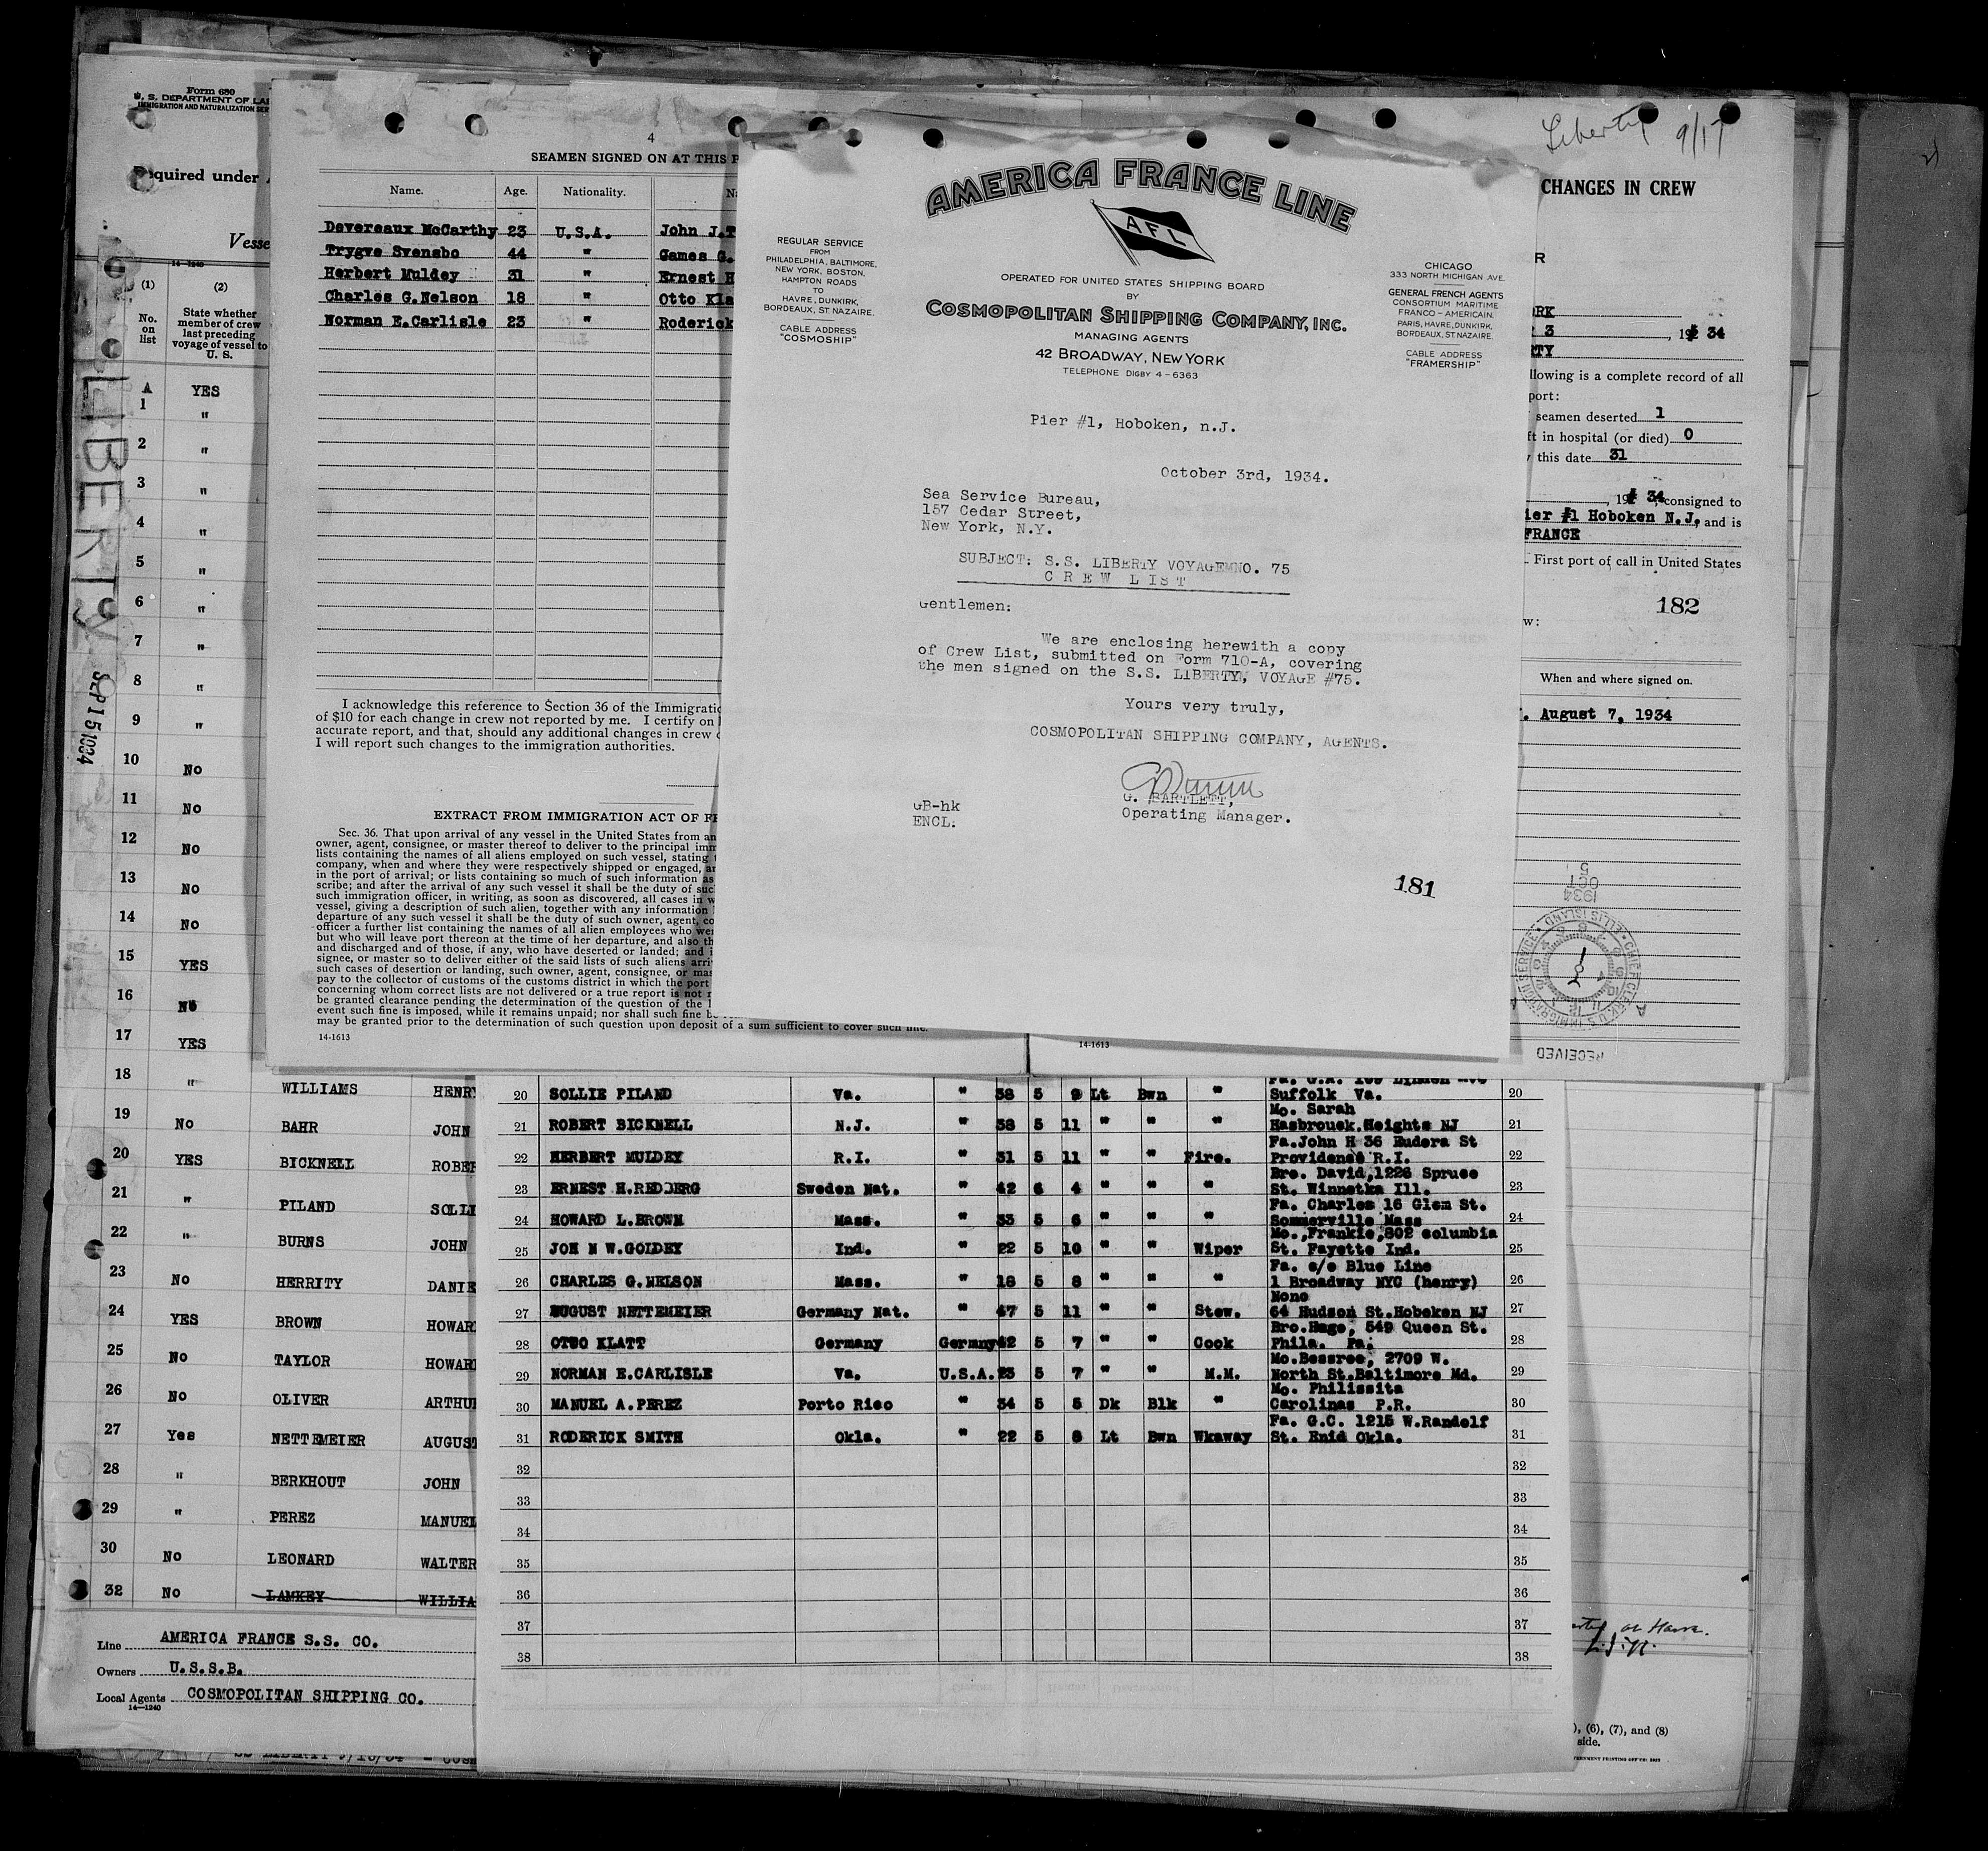 Form 680
U. S. DEPARTMENT OF
IMMIGRATION AND NATURALIZATION
Required under
14-1240
(1)
(2)
No.
on
list
State whether
member of crew
last preceding
voyage of vessel to
U. S.
LIBERTY
SEP 15 1934
A
1 YES
"
2 "
3 "
4 "
5 "
6 "
7 "
8 "
9 "
10 No
11 No
12 No
13 No
14 No
15 YES
16 No
17 YES
18 " WILLIAMS HENRY
19 No BAHR JOHN
20 YES BICKNELL
21 " PILAND
22 " BURNS JOHN
23 No HERRITY
24 YES BROWN
25 No TAYLOR
26 No OLIVER
27 Yes NETTEMEIER AUGUST
28 " BERKHOUT JOHN
29 " PEREZ MANUEL
30 No LEONARD WALTER
32 No LAMKEY
Line AMERICA FRANCE S.S. CO.
Owners U.S.S.B.
Local Agents COSMOPOLITAN SHIPPING CO.
14—1240
4
SEAMEN SIGNED ON AT THIS
Name. Age. Nationality.
Devereaux McCarthy 23 U.S.A. John J.
Trygve Svensbo 44 " Games G.
Herbert Muldey 31 " Ernest H
Charles G.Nelson 18 " Otto
Norman E.Carlisle 23 " Roderick
I acknowledge this reference to Section 36 of the
of $10 for each change in crew not reported by me. I certify on
accurate report, and that, should any additional changes in crew
I will report such changes to the immigration authorities.
EXTRACT FROM IMMIGRATION ACT OF
Sec. 36. That upon arrival of any vessel in the United States from
owner, agent, consignee, or master thereof to deliver to the principal
lists containing the names of all aliens employed on such vessel, stating
company, when and where they were respectively shipped or engaged,
in the port of arrival; or lists containing so much of such information as
scribe; and after the arrival of any such vessel it shall be the duty of
such immigration officer, in writing, as soon as discovered, all cases in
vessel, giving a description of such alien, together with any information
departure of any such vessel it shall be the duty of such owner, agent,
officer a further list containing the names of all alien employees who
but who will leave port thereon at the time of her departure, and also
and discharged and of those, if any, who have deserted or landed; and
signee, or master so to deliver either of the said lists of such aliens
such cases of desertion or landing, such owner, agent, consignee, or
pay to the collector of customs of the customs district in which the port
concerning whom correct lists are not delivered or a true report is not
be granted clearance pending the determination of the question of the
event such fine is imposed, while it remains unpaid; nor shall such fine
may be granted prior to the determination of such question upon deposit of a sum sufficient to cover such fine.
14-1613
AMERICA FRANCE LINE
AFL
REGULAR SERVICE
FROM
PHILADELPHIA, BALTIMORE,
NEW YORK, BOSTON,
HAMPTON ROADS
TO
HAVRE, DUNKIRK,
BORDEAUX, ST NAZAIRE.
CABLE ADDRESS
"COSMOSHIP"
OPERATED FOR UNITED STATES SHIPPING BOARD
BY
COSMOPOLITAN SHIPPING COMPANY, INC.
MANAGING AGENTS
42 BROADWAY, NEW YORK
TELEPHONE DIGBY 4-6363
CHICAGO
333 NORTH MICHIGAN AVE.
GENERAL FRENCH AGENTS
CONSORTIUM MARITIME
FRANCO-AMERICAIN.
PARIS, HAVRE, DUNKIRK,
BORDEAUX, ST NAZAIRE.
CABLE ADDRESS
"FRAMERSHIP"
Pier #1, Hoboken, n.J.
October 3rd, 1934.
Sea Service Bureau,
157 Cedar Street,
New York, N.Y.
SUBJECT: S.S. LIBERTY VOYAGEMNO. 75
C R E W L I S T
Gentlemen:
We are enclosing herewith a copy
of Crew List, submitted on Form 710-A, covering
the men signed on the S.S. LIBERTYN, VOYAGE #75.
Yours very truly,
COSMOPOLITAN SHIPPING COMPANY, AGENTS.
G. BARTLETT,
Operating Manager.
GB-hk
ENCL.
181
Liberty 9/17
CHANGES IN CREW
3, 19 34
following is a complete record of all
port:
seamen deserted 1
in hospital (or died) 0
this date 31
, 19 34, consigned to
#1 Hoboken N.J., and is
FRANCE
First port of call in United States
182
When and where signed on.
August 7, 1934
1934
OCT
5
CHIEF CLERK U.S. IMMIGRATION SERVICE • ELLIS ISLAND
RECEIVED
14-1613
20 SOLLIE PILAND Va. " 38 5 9 Lt Bwn " Suffolk Va. 20
Mo. Sarah
21 ROBERT BICKNELL N.J. " 38 5 11 " " " Hasbrouck.Heights NJ 21
Fa.John H 36 Eudora St
22 HERBERT MULDEY R.I. " 31 5 11 " " Fire. Providence R.I. 22
Bro. David,1226 Spruce
23 ERNEST H.REDDERG Sweden Nat. " 42 6 4 " " " St. Winnetka Ill. 23
Fa. Charles 16 Glem St.
24 HOWARD L.BROWN Mass. " 33 5 6 " " " Sommerville Mass 24
Mo.,Frankie,802 columbia
25 JOH N W.GOLDEY Ind. " 22 5 10 " " Wiper St. Fayette Ind. 25
Fa. c/o Blue Line
26 CHARLES G.NELSON Mass. " 18 5 8 " " " 1 Broadway NYC (henry) 26
None
27 AUGUST NETTEMEIER Germany Nat. " 47 5 11 " " Stew. 64 Hudson St.Hoboken NJ 27
Bro.Hage, 549 Queen St.
28 OTTO KLATT Germany Germny 42 5 7 " " Cook Phila. Pa. 28
Mo.Bessree, 2709 W.
29 NORMAN E.CARLISLE Va. U.S.A. 23 5 7 " " M.M. North St.Baltimore Md. 29
Mo. Philissita
30 MANUEL A.PEREZ Porto Rico " 34 5 5 Dk Blk " Carolinas P.R. 30
Fa. G.C. 1215 W.Randolf
31 RODERICK SMITH Okla. " 22 5 8 Lt Bwn Wkaway St. Enid Okla. 31
32 32
33 33
34 34
35 35
36 36
37 37
38 38
(6), (7), and (8)
side.